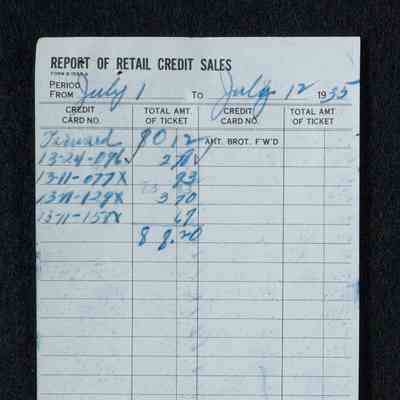 REPORT OF RETAIL CREDIT SALES
PERIOD FROM July 1 TO July 12 1935
CREDIT CARD NO. TOTAL AMT. OF TICKET CREDIT CARD NO. TOTAL AMT. OF TICKET
Forward 80 12 AMT. BROT. F'W'D
13-24-096
13-11-077X 83
13-11-129X 3 70
13-11-158X 67
8 8.20